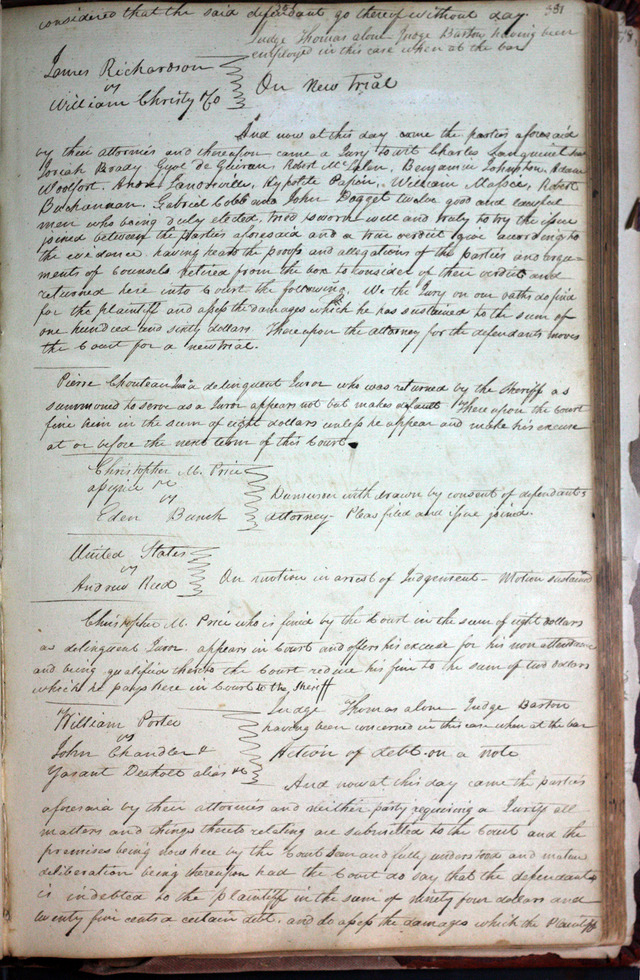 considered that the said defendant go thereof without day. 331
Judge Thomas alone Judge Barton having been
employed in this case when at the bar
James Richardson
vs
William Christy & Co
On New Trial
And now at this day came the parties aforesaid
by their attornies and thereupon came a Jury to wit Charles Sanguinet
Josiah Brady Robert Benjamin Johnston, Adam
Woolfort. Andre Landreville, Hypolite Papin, William Robert
Buchannan. Gabriel Cobb and John Dogget twelve good and lawful
men who being duly elected, tried & sworn well and truly to try the issue
joined between the parties aforesaid and a true verdict give according to
the evidence having heard the proofs and allegations of the parties and argu-
ments of Counsels retired from the box to consider of their verdict and
returned here into Court the following. We the Jury on our oaths do find
for the plaintiff and assess the damages which he has sustained to the sum of
one hundred and sixty dollars Thereupon the attorney for the defendants moves
the Court for a new trial.
Pierre Chouteau Junr a delinquent Juror who was returned by the Sheriff as
summoned to serve as a Juror appears not but makes default Thereupon the Court
fine him in the sum of eight dollars unless he appear and make his excuse
at or before the next term of this Court.
Christopher M. Price
assignee &c
vs
Eden Bunch
Demurrer with drawn by consent of defendants
attorney - Pleas filed and issue joined.
United States
vs
Andrew Reed
On motion in arrest of Judgement - Motion sustained
Christopher M. Price who is fined by the Court in the sum of eight dollars
as delinquent Juror appears in Court and offers his excuse for his non attendance
and being qualified thereto the Court reduce his fine to the sum of two dollars
which he pays here in Court to the Sheriff
William Porter
vs
John Chandler &
alias &c
Judge Thomas alone Judge Barton
having been concerned in this case when at the bar
Action of debt on a note
And now at this day came the parties
aforesaid by their attornies and neither party requiring a Jury all
matters and things thereto relating are submitted to the Court and the
premises being now here by the Court seen and fully understood and mature
deliberation being thereupon had the Court do say that the defendants
is indebted to the plaintiff in the sum of ninety four dollars and
twenty five cents a certain debt, and do assess the damages which the Plaintiff